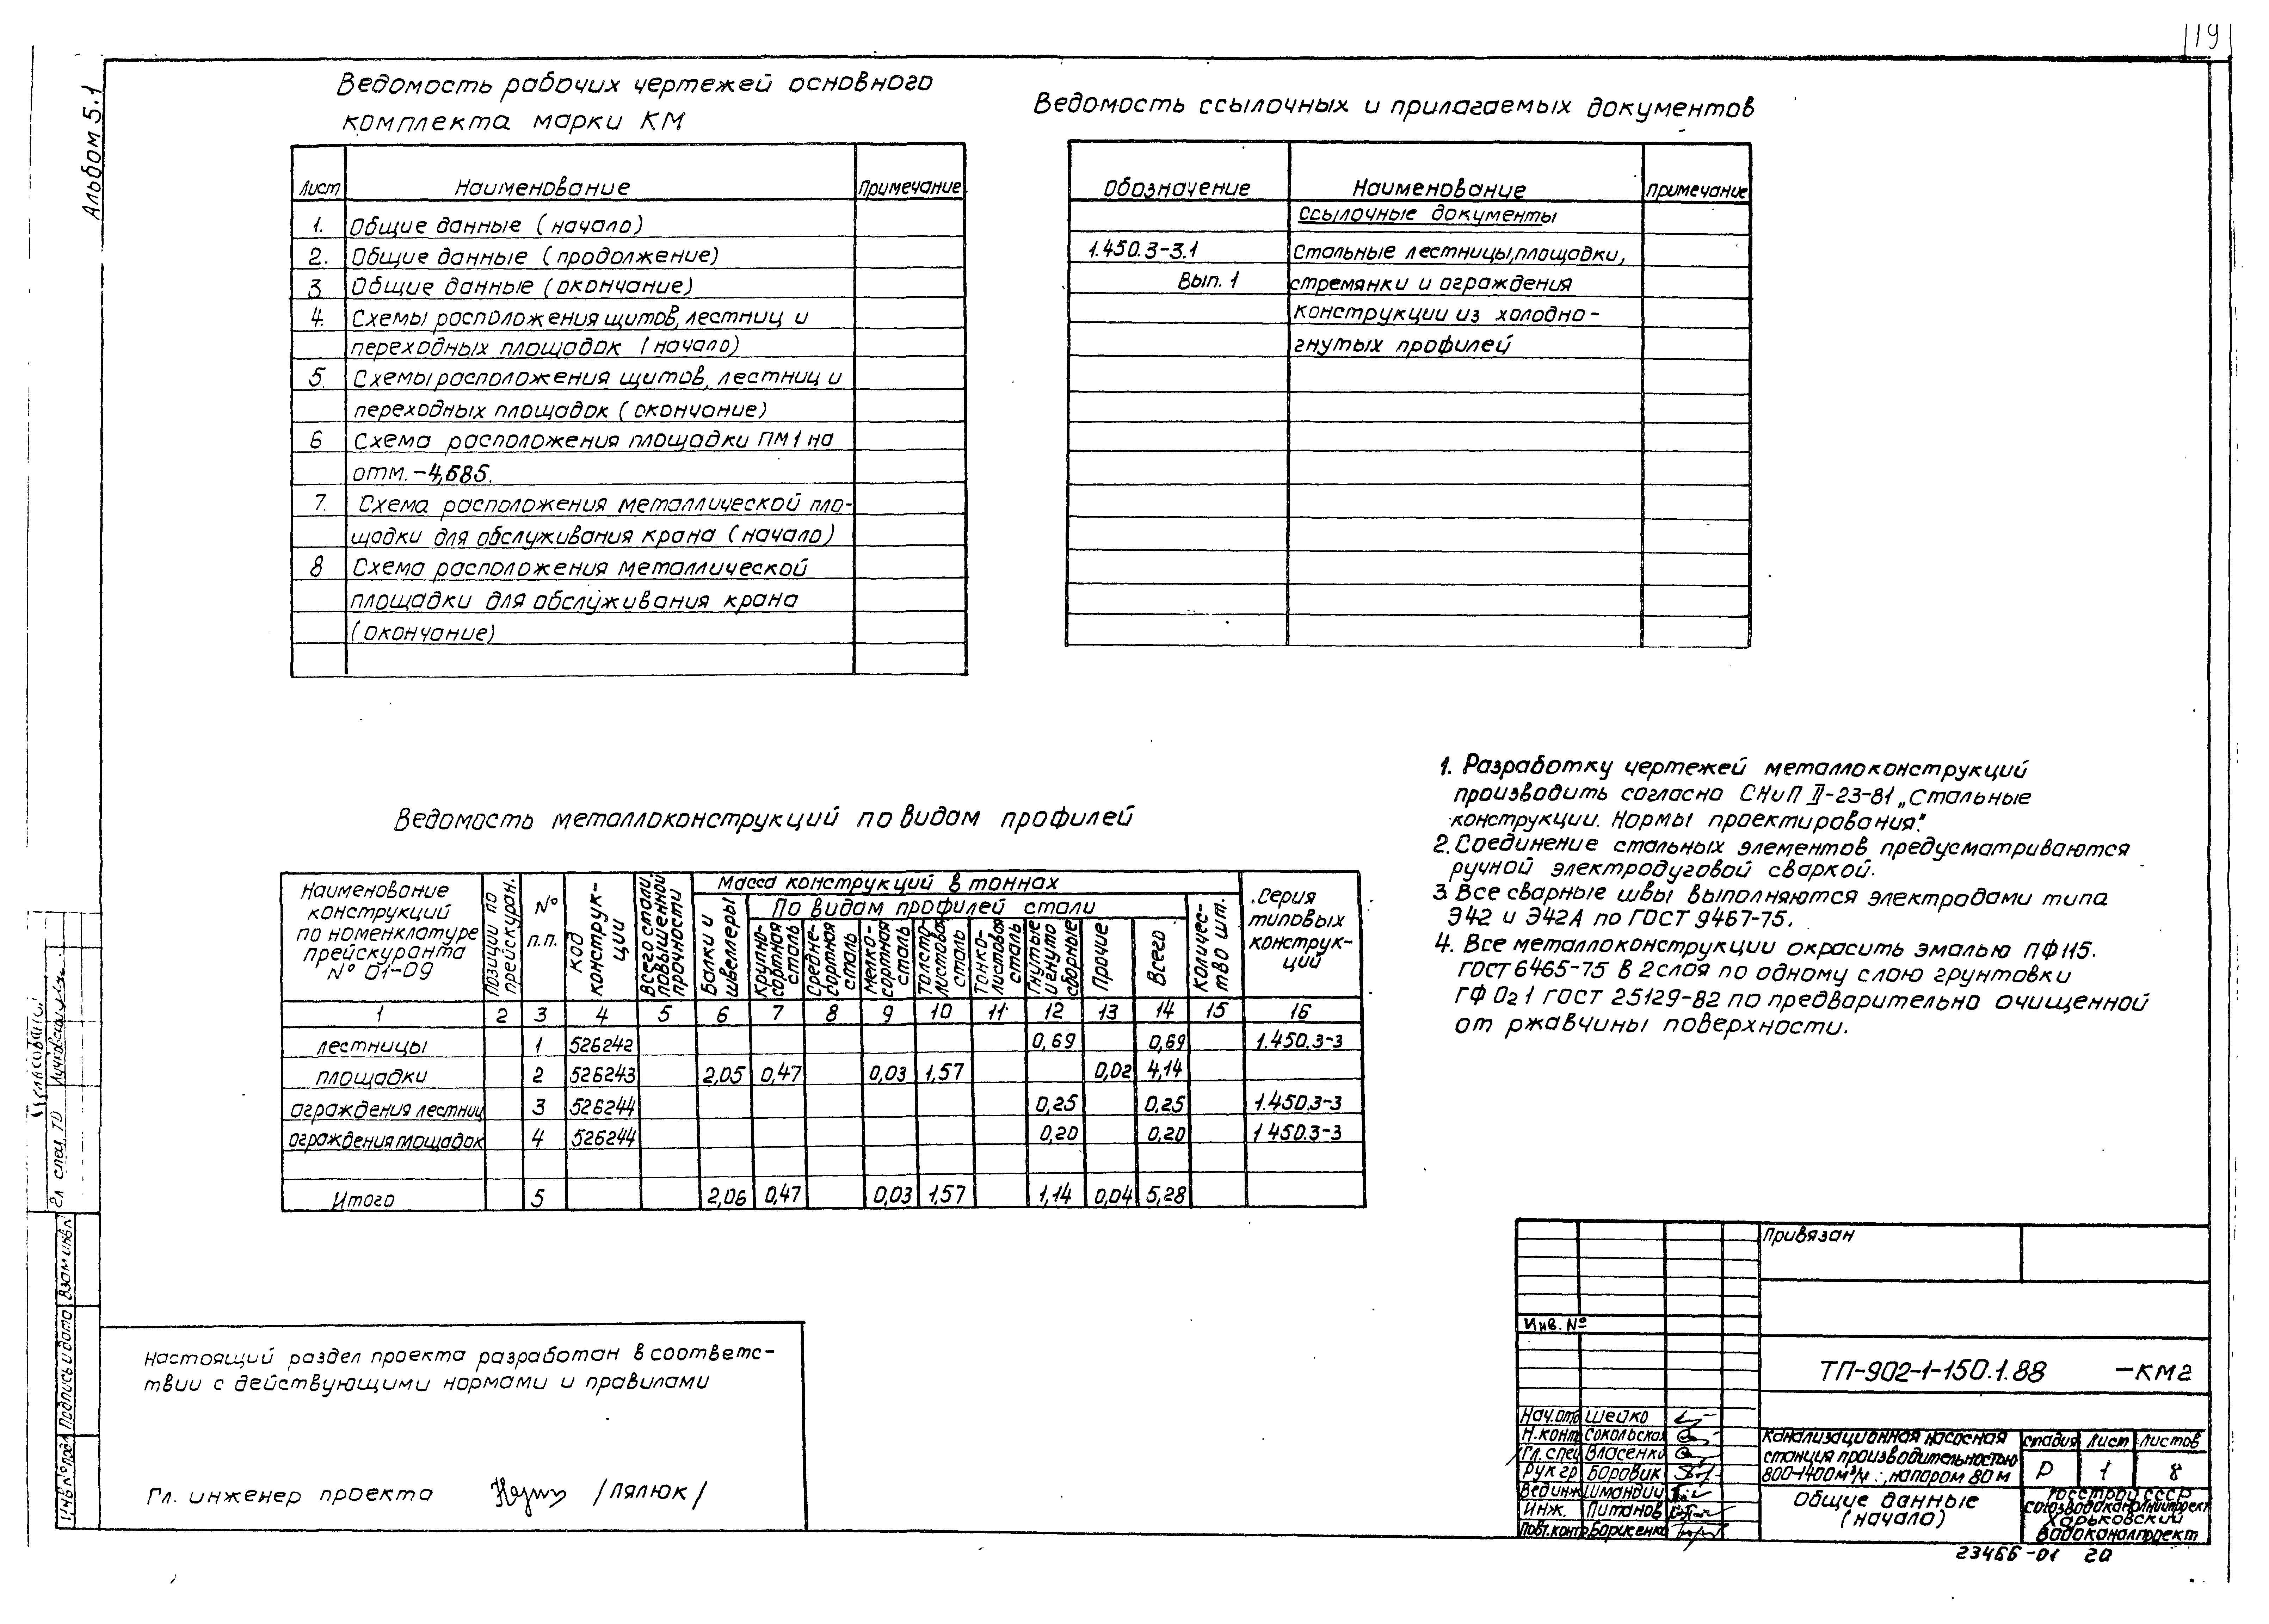 19
Альбом 5.1
Ведомость рабочих чертежей основного
комплекта марки КМ
Лист Наименование Примечание
1. Общие данные (начало)
2. Общие данные (продолжение)
3 Общие данные (окончание)
4. Схемы расположения щитов, лестниц и
переходных площадок (начало)
5. Схемы расположения щитов, лестниц и
переходных площадок (окончание)
6 Схема расположения площадки ПМ1 на
отм. -4,685.
7. Схема расположения металлической пло-
щадки для обслуживания крана (начало)
8 Схема расположения металлической
площадки для обслуживания крана
(окончание)
Ведомость ссылочных и прилагаемых документов
Обозначение Наименование Примечание
Ссылочные документы
1.450.3-3.1 Стальные лестницы, площадки,
Вып. 1 стремянки и ограждения
конструкции из холодно-
гнутых профилей
Ведомость металлоконструкций по видам профилей
Наименование
конструкций
по номенклатуре
прейскуранта
№ 01-09
Позиции по
прейскуран.
№
п.п.
Код
конструк-
ции
Всего стали
повышенной
прочности
Масса конструкций в тоннах
По видам профилей стали
Балки и
швеллеры
Крупно-
сортная
сталь
Средне-
сортная
сталь
Мелко-
сортная
сталь
Толсто-
листовая
сталь
Тонко-
листовая
сталь
Гнутые
и гнуто
сварные
Прочие
Всего
Количес-
тво шт.
Серия
типовых
конструк-
ций
1 2 3 4 5 6 7 8 9 10 11 12 13 14 15 16
лестницы 1 526242 0,69 0,69 1.450.3-3
площадки 2 526243 2,05 0,47 0,03 1,57 0,02 4,14
ограждения лестниц 3 526244 0,25 0,25 1.450.3-3
ограждения площадок 4 526244 0,20 0,20 1 450.3-3
Итого 5 2,06 0,47 0,03 1,57 1,14 0,04 5,28
1. Разработку чертежей металлоконструкций
производить согласно СНиП II-23-81 „Стальные
конструкции. Нормы проектирования".
2. Соединение стальных элементов предусматриваются
ручной электродуговой сваркой.
3. Все сварные швы выполняются электродами типа
Э42 и Э42А по ГОСТ 9467-75.
4. Все металлоконструкции окрасить эмалью ПФ 115.
ГОСТ 6465-75 в 2 слоя по одному слою грунтовки
ГФ 021 ГОСТ 25129-82 по предварительно очищенной
от ржавчины поверхности.
Настоящий раздел проекта разработан в соответс-
твии с действующими нормами и правилами
Гл. инженер проекта /Лялюк/
Гл спец ТО
Инв № подл Подпись и дата Взам инв №
Привязан
Инв. №
ТП-902-1-150.1.88 -КМ2
Нач. отд Шейко
Н. конт Сокольская
Гл. спец Власенко
Рук гр Боровик
Вед инж Шмандий
Инж. Питанов
Повт. контр Борисенко
Канализационная насосная
станция производительностью
800-1400 м³/ч., напором 80 м
Стадия Лист Листов
Р 1 8
Общие данные
(начало)
Госстрой СССР
Союзводоканалниипроект
Харьковский
Водоканалпроект
23466-01 20